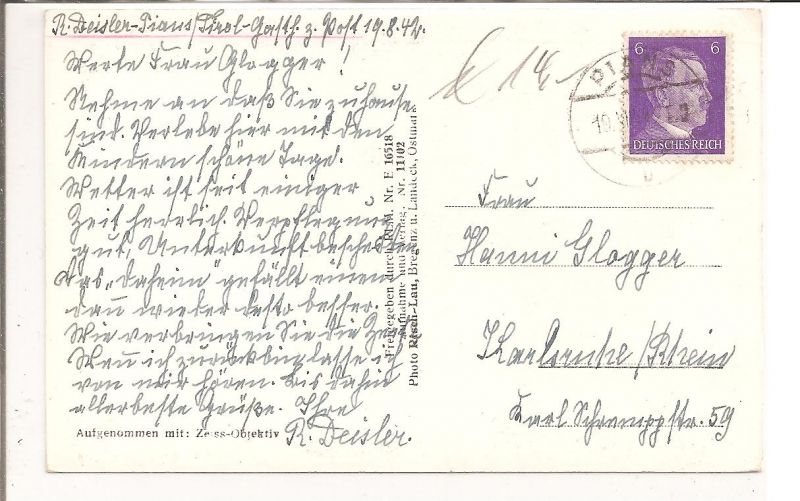 R. Deisler-Pians/Tirol-Gasth. z. Post 19.8.42.
Werte Frau Glogger!
Nehme an daß Sie zuhause
sind. Verlebe hier mit den
Kindern schöne Tage.
Wetter ist seit einiger
Zeit herrlich. Verpflegung
gut, Unterkunft bescheiden
das „daheim" gefällt einem
dann wieder desto besser.
Wie verbringen Sie die Zeit?
Wenn ich zurück bin lasse ich
von mir hören. Bis dahin
allerbeste Grüße. Ihre
R. Deisler.
Aufgenommen mit: Zeiss-Objektiv
Freigegeben durch RLM. Nr. E 16518
Aufnahme und Verlag. Nr. 11102
Photo Risch-Lau, Bregenz u. Landeck, Ostmark
6 6
DEUTSCHES REICH
PIANS
Frau
Hanni Glogger
Karlsruhe/Rhein
Karl Schremppstr. 59